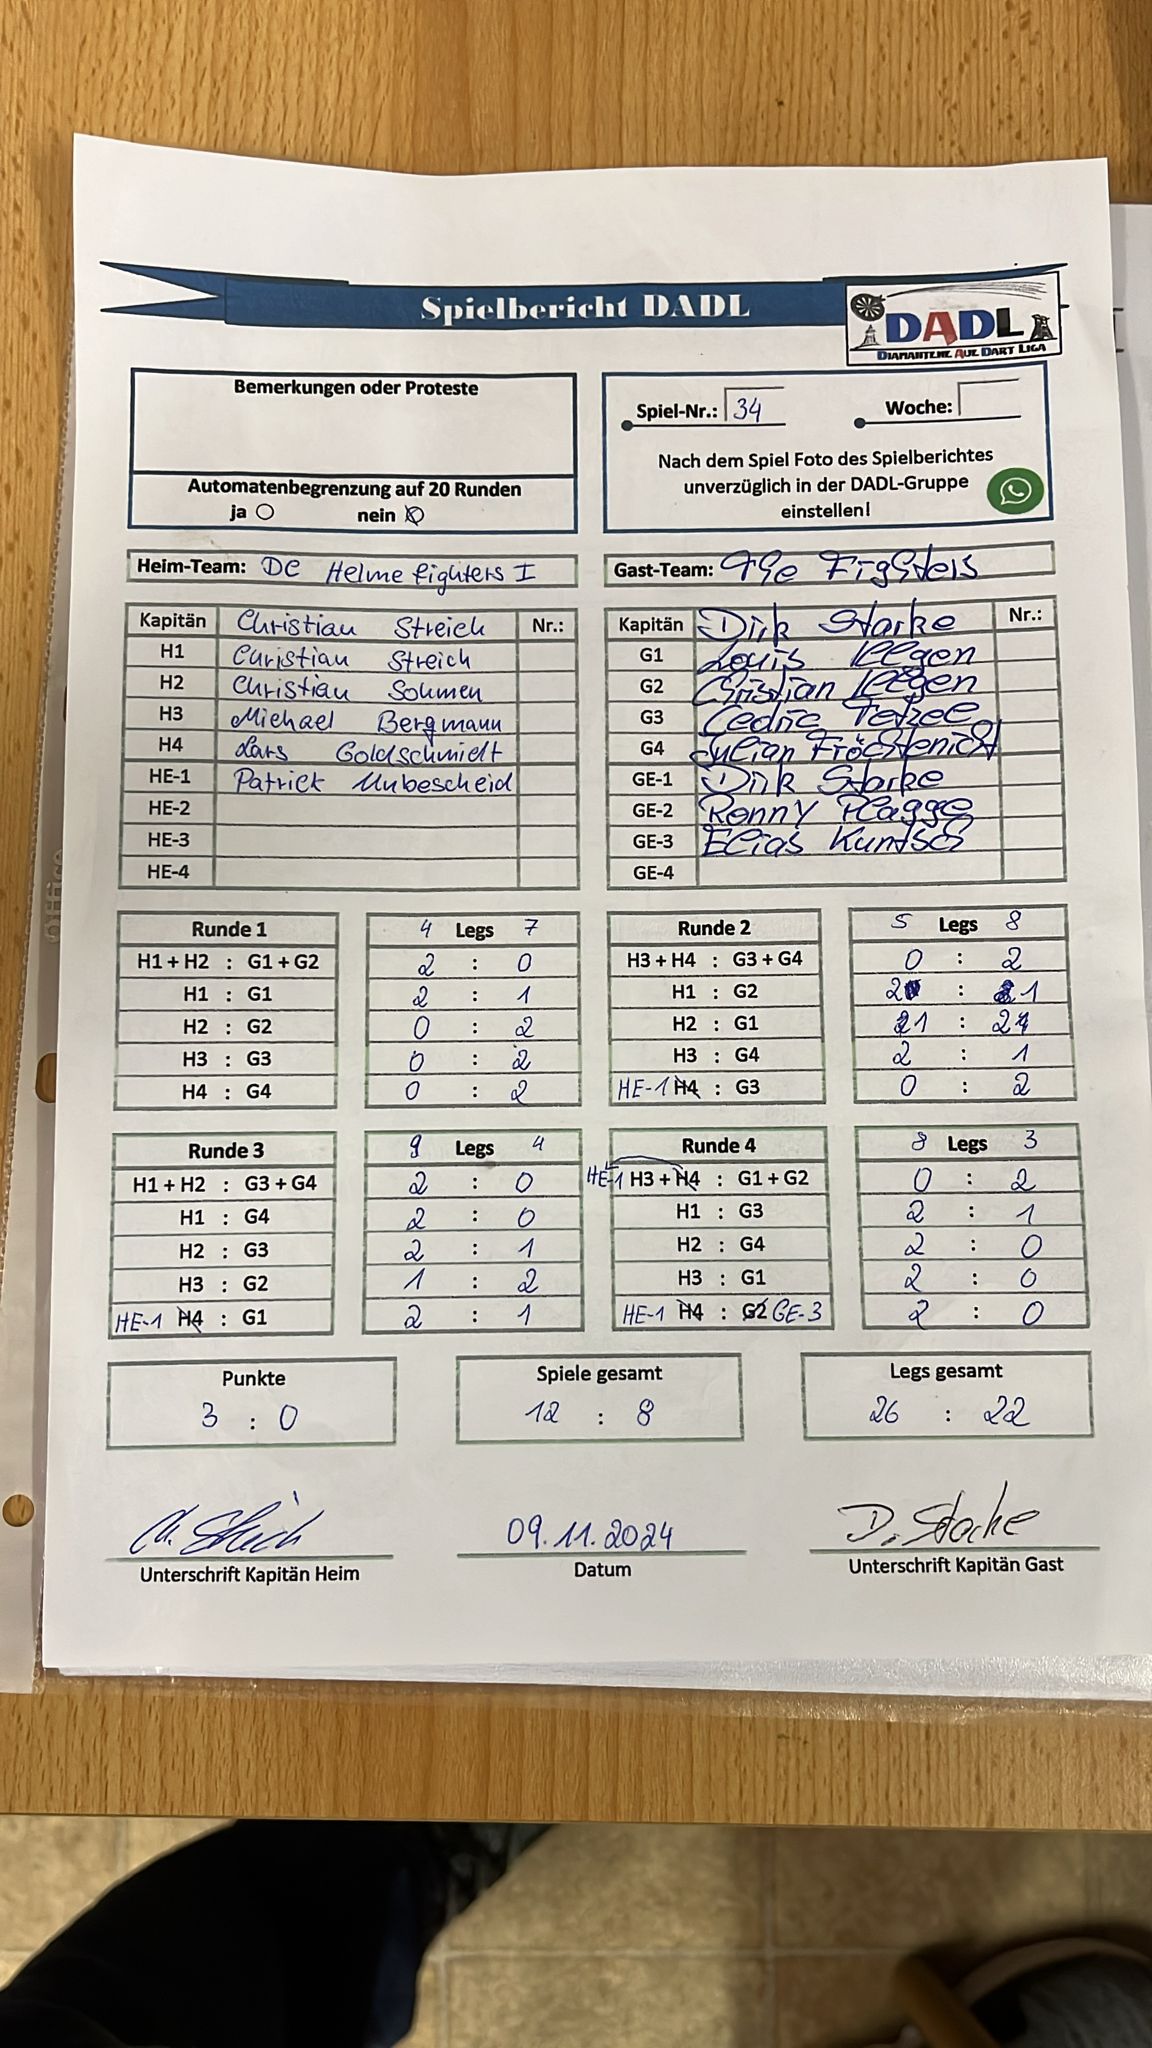 Spielbericht DADL
DADL
DIAMANTENE AUE DART LIGA
Bemerkungen oder Proteste
Automatenbegrenzung auf 20 Runden
ja nein
Spiel-Nr.: 34 Woche:
Nach dem Spiel Foto des Spielberichtes
unverzüglich in der DADL-Gruppe
einstellen!
Heim-Team: DC Helmefighters I
Kapitän Christian Streich Nr.:
H1 Christian Streich
H2 Christian Sohmen
H3 Michael Bergmann
H4 Lars Goldschmidt
HE-1 Patrick Unbescheid
HE-2
HE-3
HE-4
Gast-Team: The Fighters
Kapitän Dirk Starke Nr.:
G1 Louis
G2 Christian
G3 Cedric
G4 Julian
GE-1 Dirk Starke
GE-2 Ronny Plagge
GE-3 Elias
GE-4
Runde 1 4 Legs 7
H1 + H2 : G1 + G2 2 : 0
H1 : G1 2 : 1
H2 : G2 0 : 2
H3 : G3 0 : 2
H4 : G4 0 : 2
Runde 2 5 Legs 8
H3 + H4 : G3 + G4 0 : 2
H1 : G2 2 : 1
H2 : G1 1 : 2
H3 : G4 2 : 1
HE-1 H4 : G3 0 : 2
Runde 3 9 Legs 4
H1 + H2 : G3 + G4 2 : 0
H1 : G4 2 : 0
H2 : G3 2 : 1
H3 : G2 1 : 2
HE-1 H4 : G1 2 : 1
Runde 4 8 Legs 3
HE-1 H3 + H4 : G1 + G2 0 : 2
H1 : G3 2 : 1
H2 : G4 2 : 0
H3 : G1 2 : 0
HE-1 H4 : G2 GE-3 2 : 0
Punkte
3 : 0
Spiele gesamt
12 : 8
Legs gesamt
26 : 22
Ch. Streich
Unterschrift Kapitän Heim
09.11.2024
Datum
D. Starke
Unterschrift Kapitän Gast